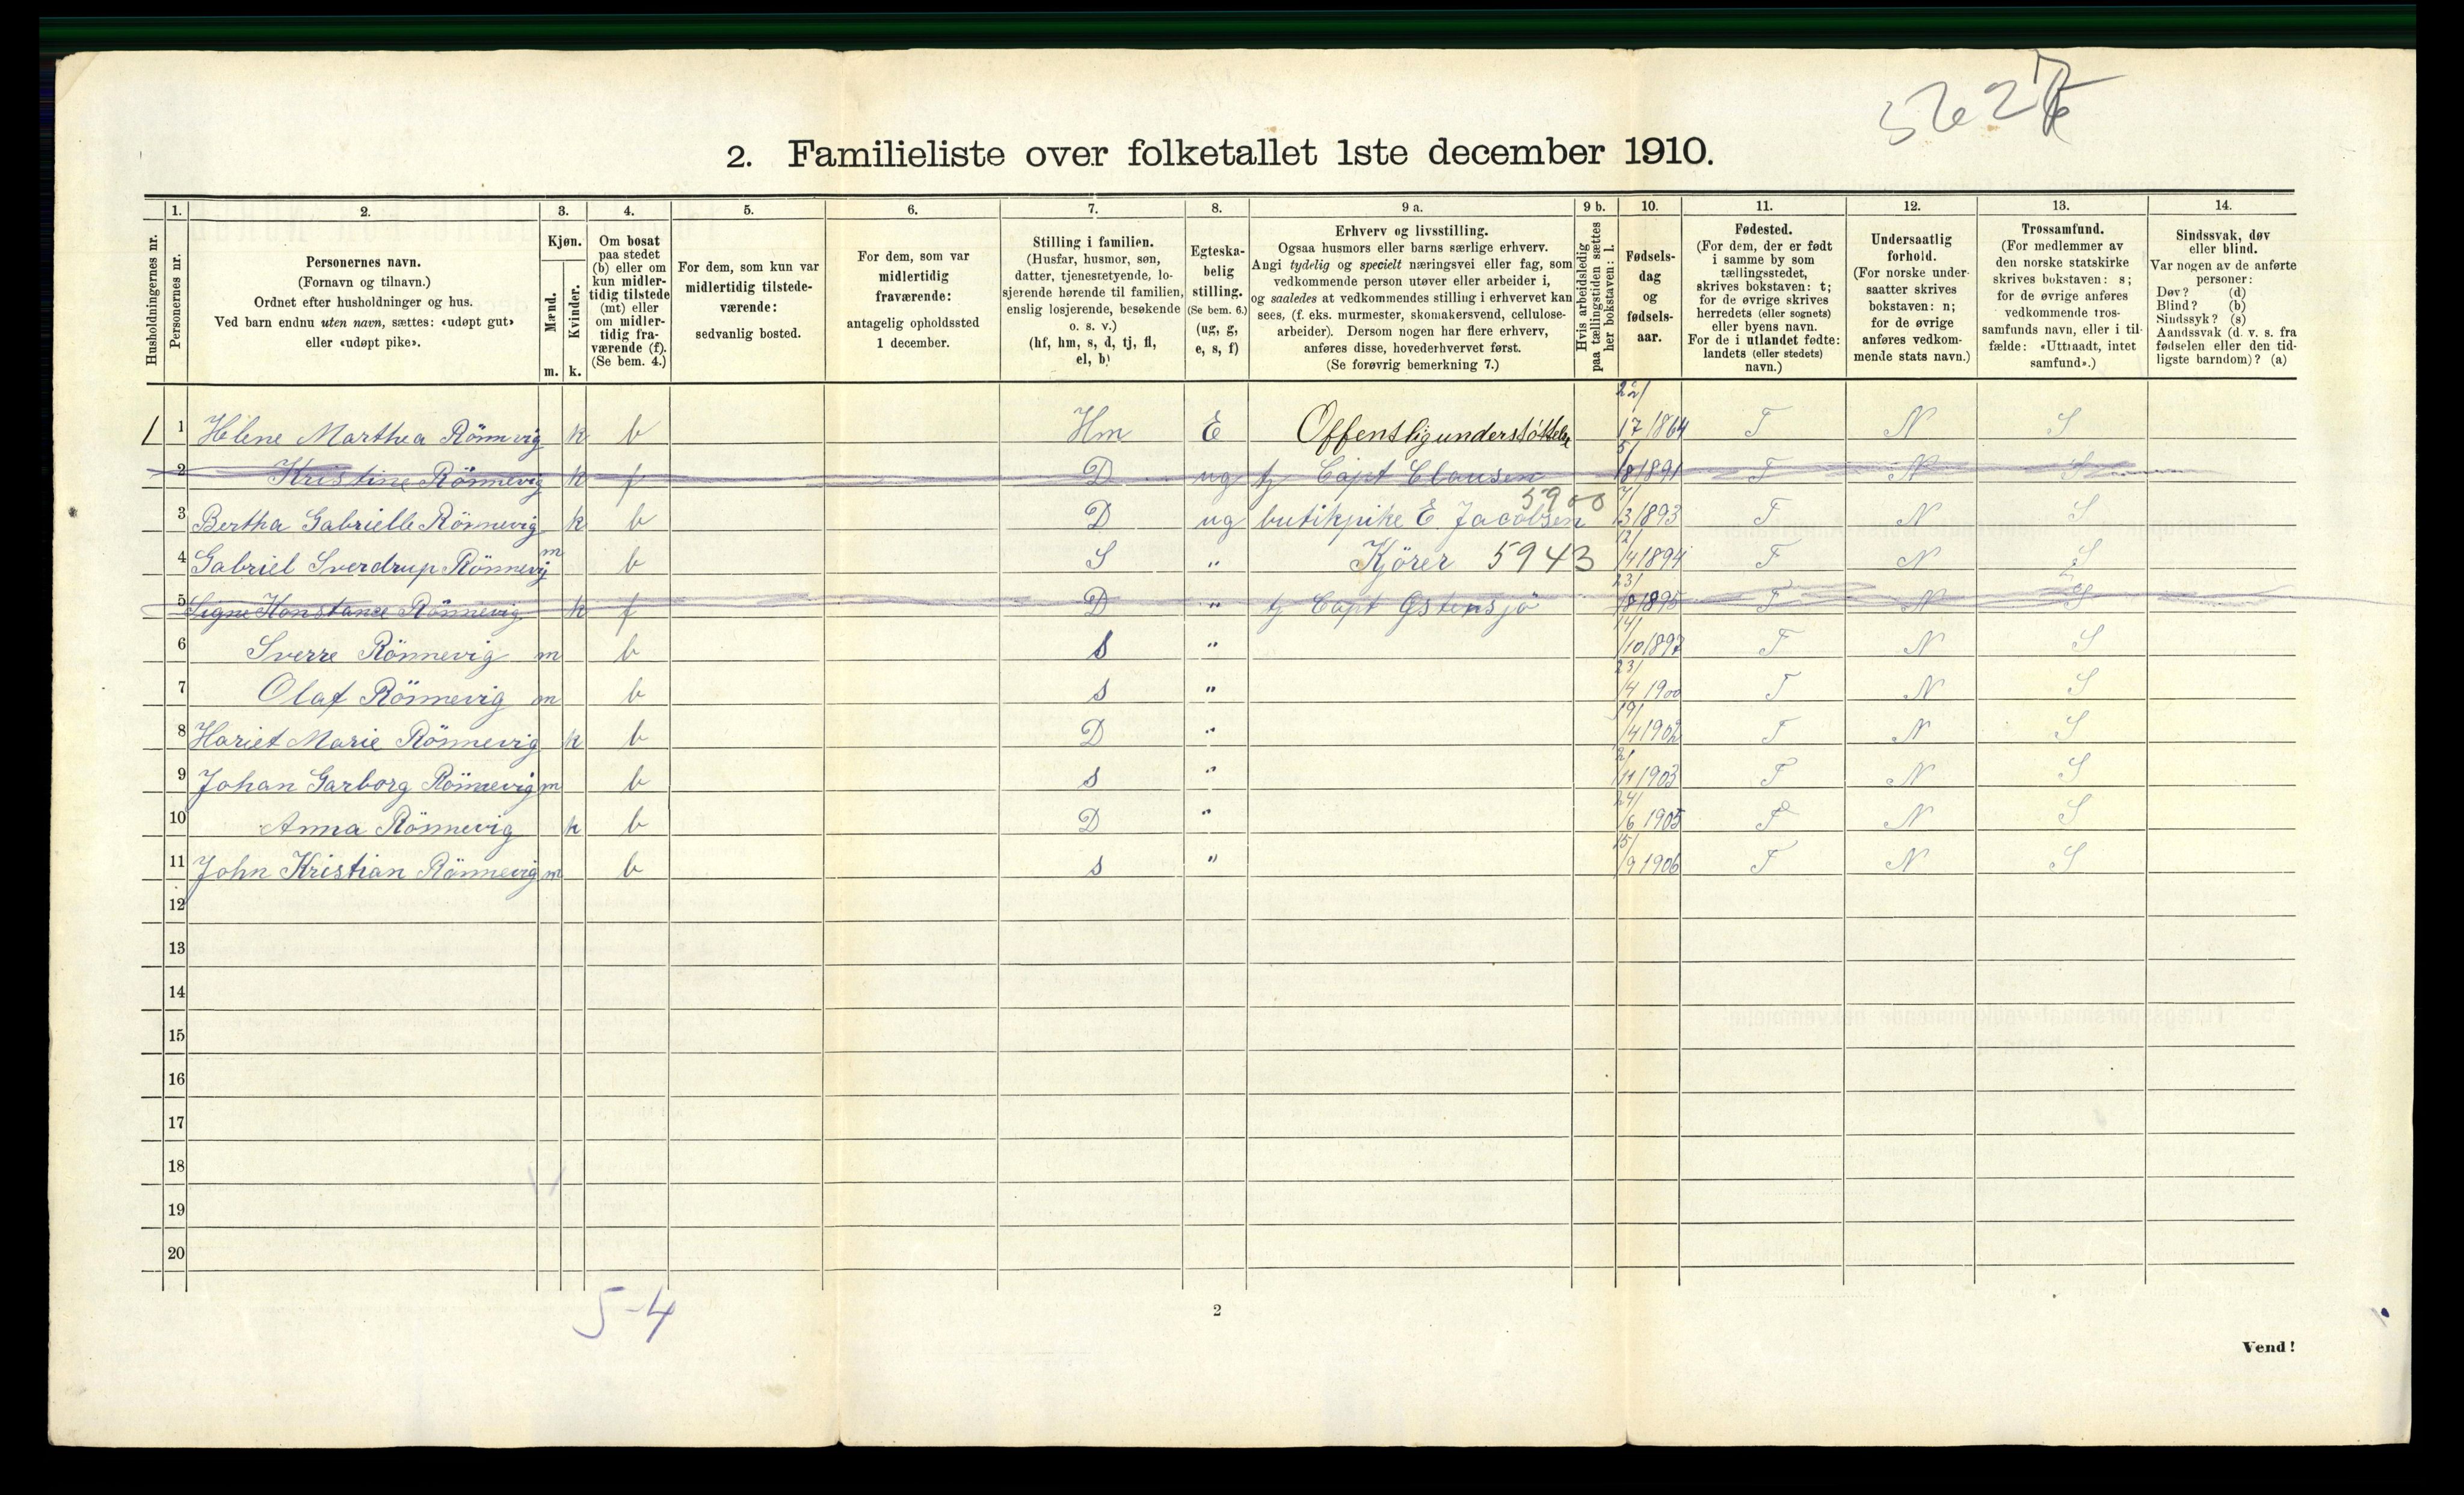 5627
2. Familieliste over folketallet 1ste december 1910.
Husholdningernes nr.
1. Personernes nr.
2. Personernes navn. (Fornavn og tilnavn.) Ordnet efter husholdninger og hus. Ved barn endnu uten navn, sættes: «udøpt gut» eller «udøpt pike».
3. Kjøn. Mænd. m. Kvinder. k.
4. Om bosat paa stedet (b) eller om kun midlertidig tilstede (mt) eller om midlertidig fraværende (f). (Se bem. 4.)
5. For dem, som kun var midlertidig tilstedeværende: sedvanlig bosted.
6. For dem, som var midlertidig fraværende: antagelig opholdssted 1 december.
7. Stilling i familien. (Husfar, husmor, søn, datter, tjenestetyende, losjerende hørende til familien, enslig losjerende, besøkende o. s. v.) (hf, hm, s, d, tj, fl, el, b)
8. Egteskabelig stilling. (Se bem. 6.) (ug, g, e, s, f)
9 a. Erhverv og livsstilling. Ogsaa husmors eller barns særlige erhverv. Angi tydelig og specielt næringsvei eller fag, som vedkommende person utøver eller arbeider i, og saaledes at vedkommendes stilling i erhvervet kan sees, (f. eks. murmester, skomakersvend, cellulosearbeider). Dersom nogen har flere erhverv, anføres disse, hovederhvervet først. (Se forøvrig bemerkning 7.)
9 b. Hvis arbeidsledig paa tællingstiden sættes her bokstaven: l.
10. Fødselsdag og fødselsaar.
11. Fødested. (For dem, der er født i samme by som tællingsstedet, skrives bokstaven: t; for de øvrige skrives herredets (eller sognets) eller byens navn. For de i utlandet fødte: landets (eller stedets) navn.)
12. Undersaatlig forhold. (For norske undersaatter skrives bokstaven: n; for de øvrige anføres vedkommende stats navn.)
13. Trossamfund. (For medlemmer av den norske statskirke skrives bokstaven: s; for de øvrige anføres vedkommende trossamfunds navn, eller i tilfælde: «Uttraadt, intet samfund».)
14. Sindssvak, døv eller blind. Var nogen av de anførte personer: Døv? (d) Blind? (b) Sindssyk? (s) Aandssvak (d. v. s. fra fødselen eller den tidligste barndom)? (a)
1 1 Helene Marthea Rönnevig k b Hm E Offentligunderstøttelse 22/17 1864 T N S
2 Kristine Rönnevig k f D ug tj Capt Clausen 5/8 1891 T N S
3 Bertha Gabrielle Rönnevig k b D ug butikpike E Jacobsen 5900 7/3 1893 T N S
4 Gabriel Sverdrup Rönnevig m b S " Kjörer 5943 12/4 1894 T N S
5 Signe Konstance Rönnevig k f D " tj Capt Østensjö 23/8 1895 T N S
6 Sverre Rönnevig m b s " 14/10 1897 T N S
7 Olaf Rönnevig m b s " 23/4 1900 T N S
8 Hariet Marie Rönnevig k b D " 19/4 1902 T N S
9 Johan Garborg Rönnevig m b s " 2/11 1903 T N S
10 Anna Rönnevig k b D " 24/6 1905 T N S
11 John Kristian Rönnevig m b s " 15/9 1906 T N S
12
13
14
15
16
17
18
19
20
5-4
2
Vend!